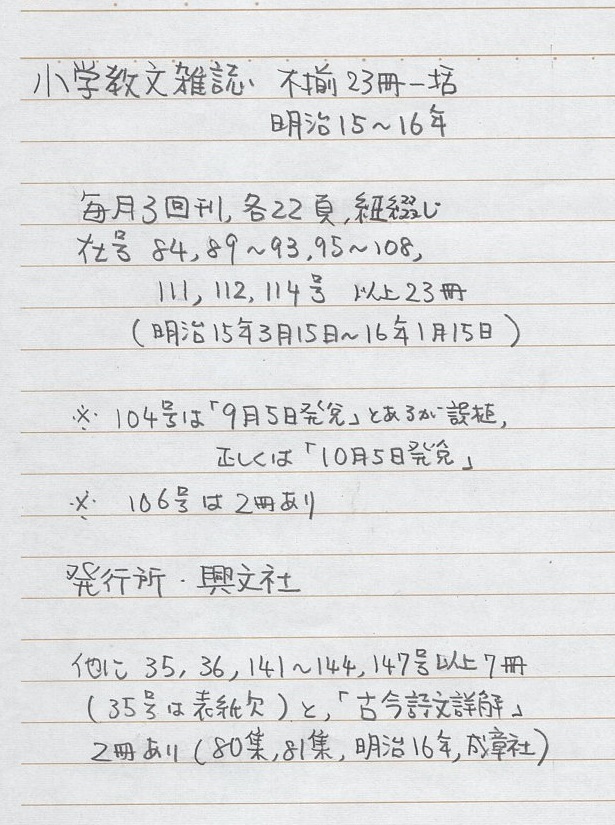 小学教文雑誌 不揃23冊一括
明治15～16年
毎月3回刊,各22頁,紐綴じ
在号 84,89～93,95～108,
111,112,114号 以上23冊
(明治15年3月15日～16年1月15日)
※ 104号は「9月5日発兌」とあるが誤植,
正しくは「10月5日発兌」
※ 106号は2冊あり
発行所・興文社
他に 35,36,141～144,147号以上7冊
(35号は表紙欠)と,「古今詩文詳解」
2冊あり(80集,81集,明治16年,成章社)